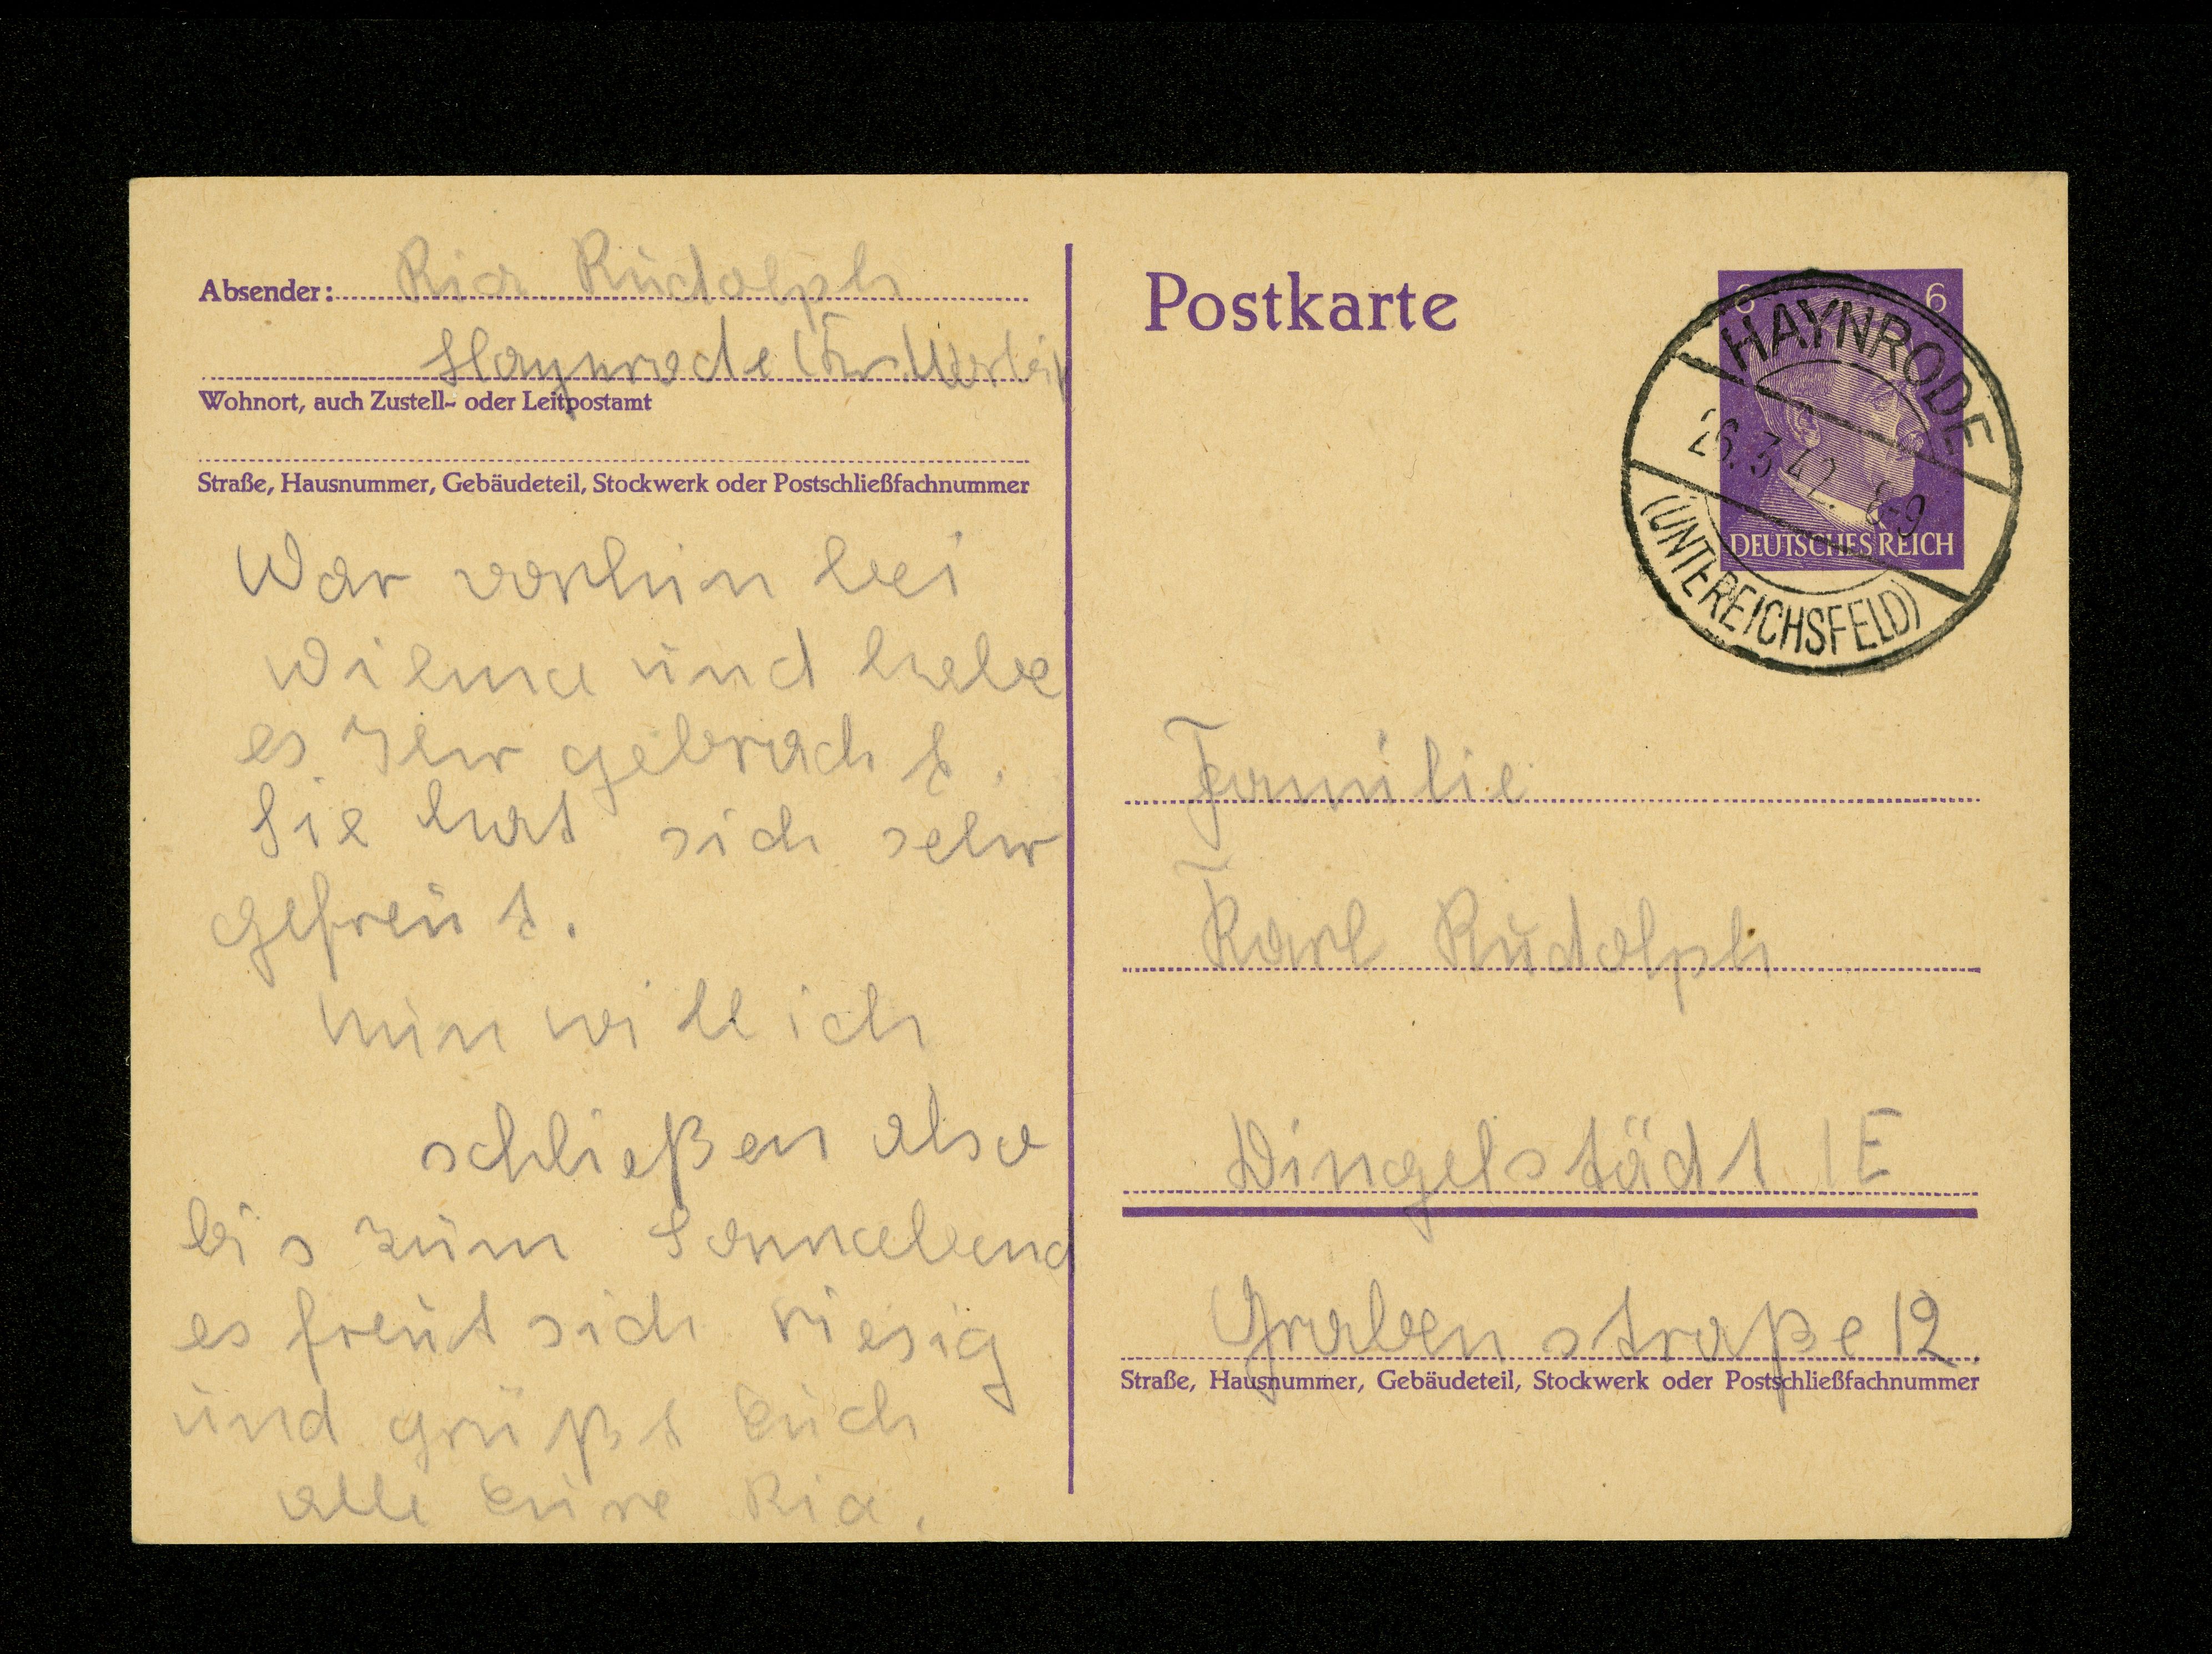 Absender: Ria Rudolph
Haynrode
Wohnort, auch Zustell- oder Leitpostamt
Straße, Hausnummer, Gebäudeteil, Stockwerk oder Postschließfachnummer
War vorhin bei
Wilma und habe
es Ihr gebracht.
Sie hat sich sehr
gefreut.
Nun will ich
schließen also
bis zum Sonnabend
es freut sich riesig
und grüßt Euch
alle Eure Ria.
Postkarte
6 6
DEUTSCHES REICH
HAYNRODE
26.3.42. 8-9
(UNTEREICHSFELD)
Familie
Karl Rudolph
Dingelstädt /E
Grabenstraße 12.
Straße, Hausnummer, Gebäudeteil, Stockwerk oder Postschließfachnummer